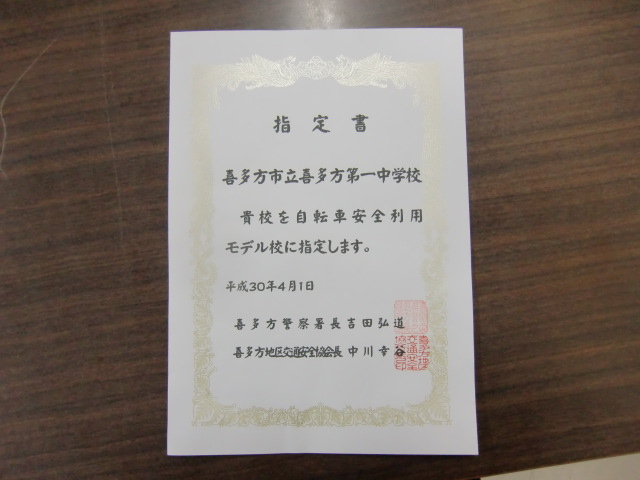 指定書
喜多方市立喜多方第一中学校
貴校を自転車安全利用
モデル校に指定します。
平成30年4月1日
喜多方警察署長吉田弘道
喜多方地区交通安全協会長 中川幸谷